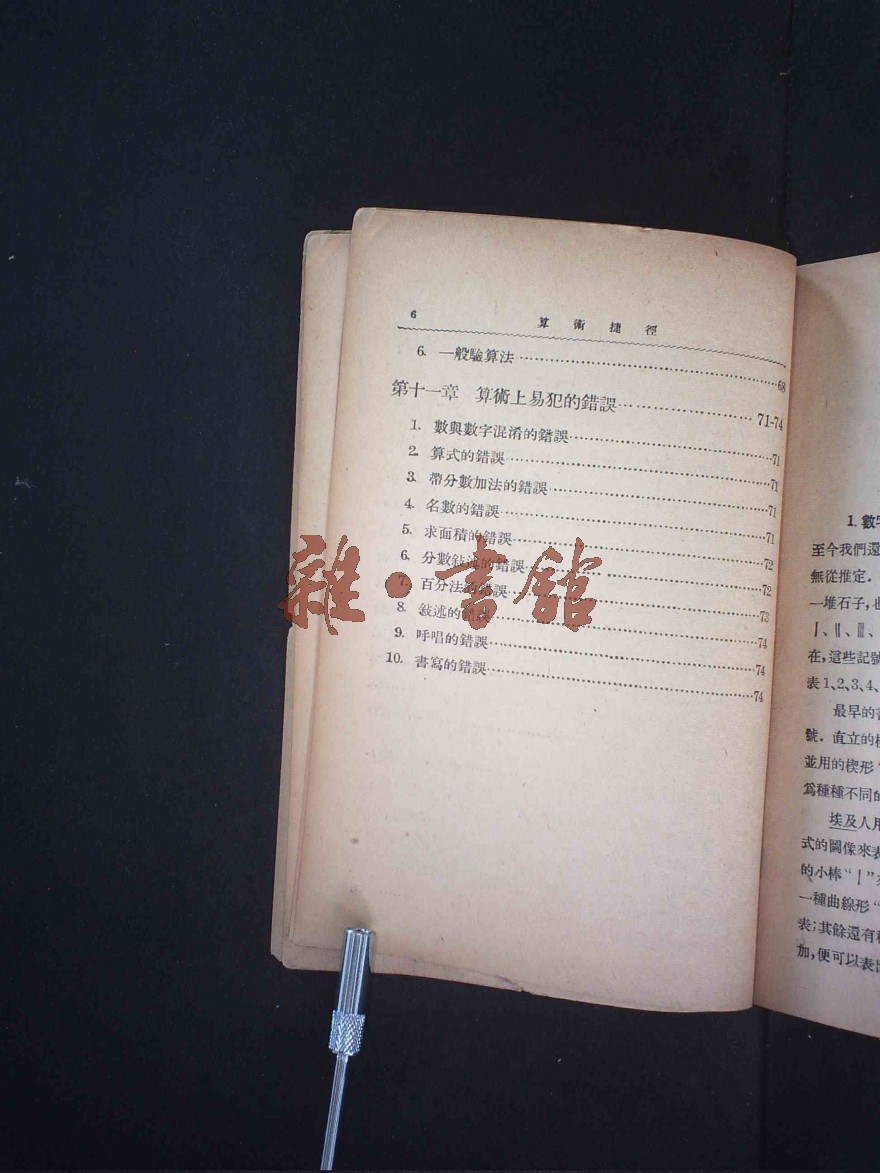 6 算術捷徑
6. 一般驗算法 68
第十一章 算術上易犯的錯誤 71-74
1. 數與數字混淆的錯誤 71
2. 算式的錯誤 71
3. 帶分數加法的錯誤 71
4. 名數的錯誤 71
5. 求面積的錯誤 72
6. 分數敍述的錯誤 72
7. 百分法的錯誤 73
8. 敍述的錯誤 74
9. 呼唱的錯誤 74
10. 書寫的錯誤 74
雜·書館
1. 數字
至今我們還
無從推定.
一堆石子,也
在,這些記號
表1、2、3、4、
最早的書
號. 直立的楔
並用的楔形“
爲種種不同的
埃及人用
式的圖像來表
的小棒“|”
一種曲線形“
表;其餘還有
加,便可以表出